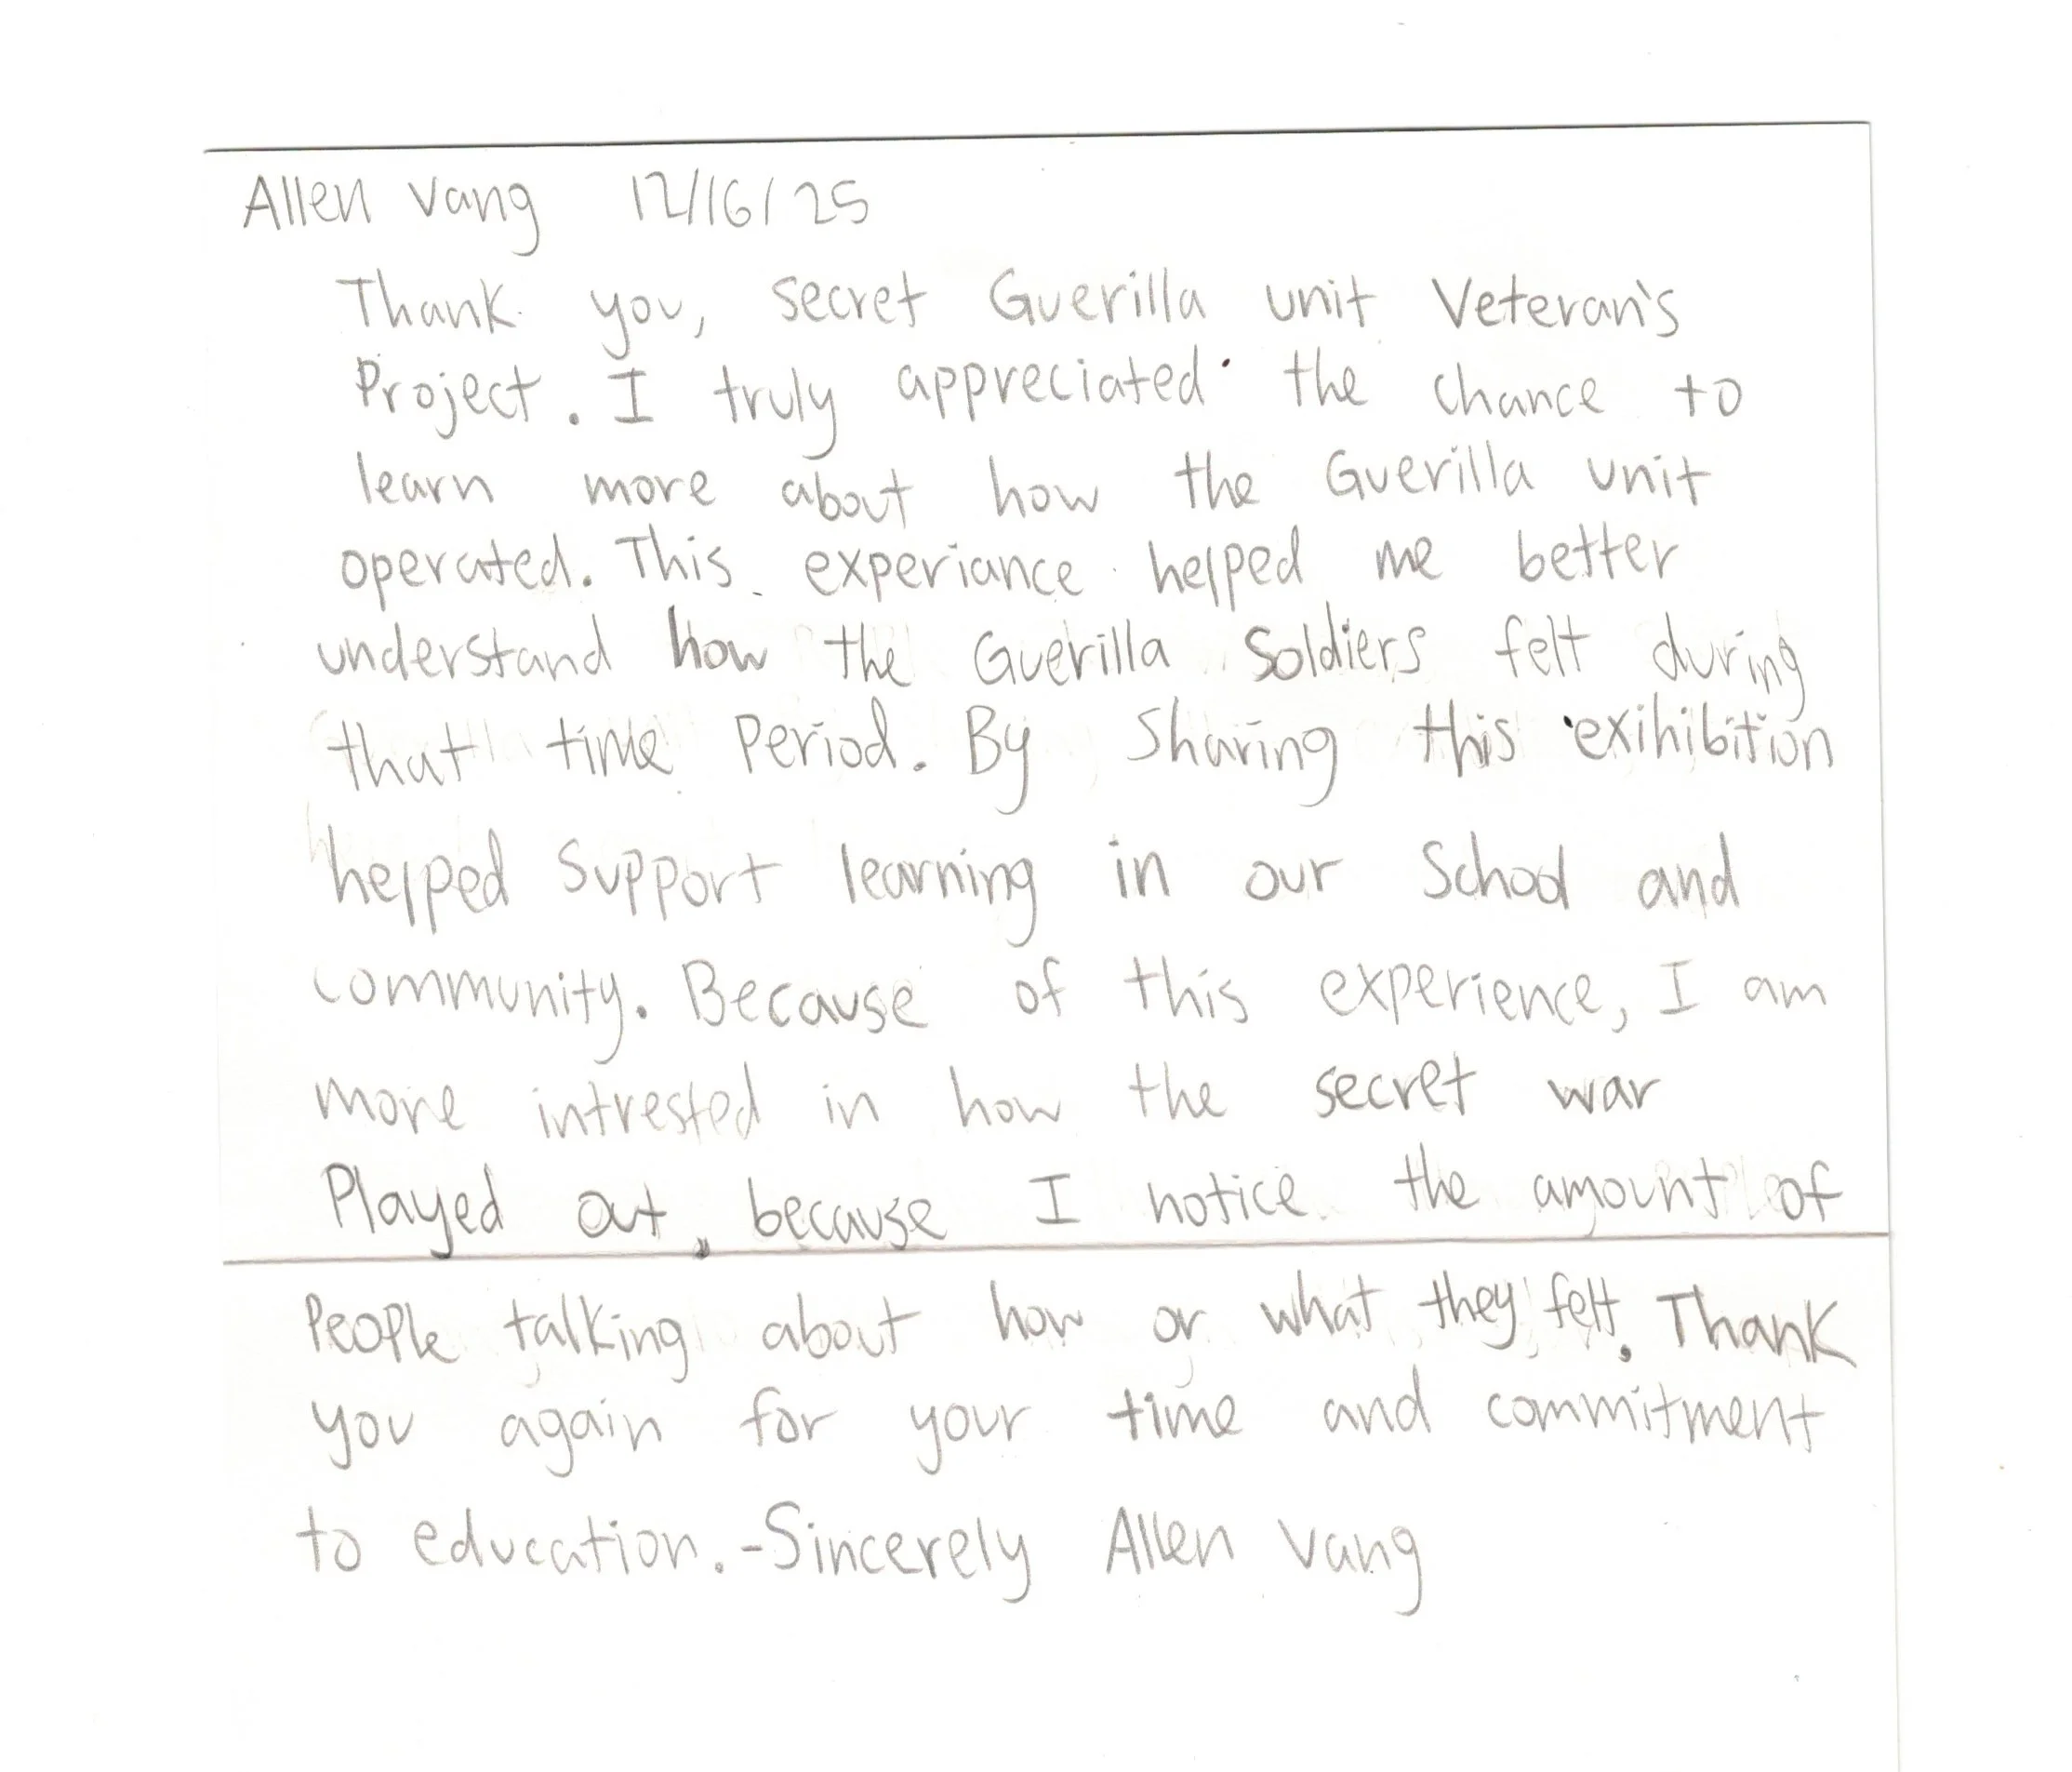 Allen Vang 12/16/25
Thank you, secret Guerilla unit Veteran's
Project. I truly appreciated the chance to
learn more about how the Guerilla unit
operated. This experiance helped me better
understand how the Guerilla Soldiers felt during
that time Period. By Sharing this exihibition
helped Support learning in our School and
community. Because of this experience, I am
more intrested in how the secret war
Played out, because I notice the amount of
People talking about how or what they felt. Thank
you again for your time and commitment
to education. -Sincerely Allen Vang